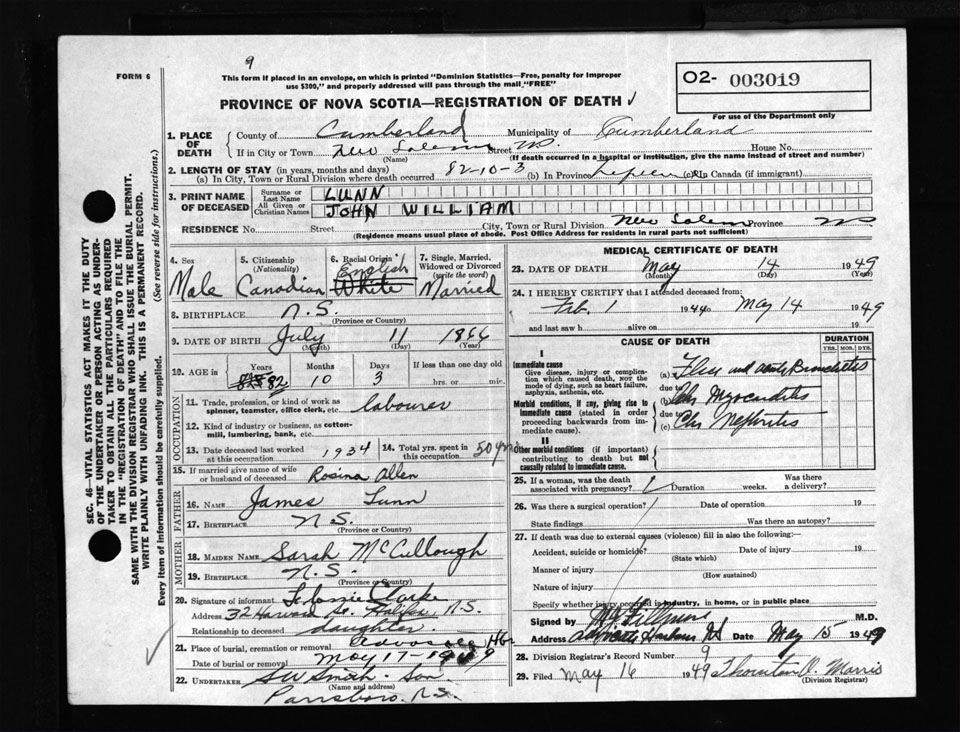 9
FORM 6
This form if placed in an envelope, on which is printed "Dominion Statistics—Free, penalty for improper
use $300," and properly addressed will pass through the mail "FREE"
O2- 003019
For use of the Department only
PROVINCE OF NOVA SCOTIA—REGISTRATION OF DEATH ✓
1. PLACE OF DEATH County of Cumberland Municipality of Cumberland
If in City or Town New Salem Street NS. House No.
(Name) (If death occurred in a hospital or institution, give the name instead of street and number)
2. LENGTH OF STAY (in years, months and days)
(a) In City, Town or Rural Division where death occurred 82-10-3 (b) In Province (c) In Canada (if immigrant)
3. PRINT NAME OF DECEASED Surname or Last Name LUNN
All Given or Christian Names JOHN WILLIAM
RESIDENCE No. Street City, Town or Rural Division New Salem Province NS
(Residence means usual place of abode. Post Office Address for residents in rural parts not sufficient)
4. Sex Male 5. Citizenship (Nationality) Canadian 6. Racial Origin English White 7. Single, Married, Widowed or Divorced (write the word) Married
8. BIRTHPLACE N.S.
(Province or Country)
9. DATE OF BIRTH July 11 1866
(Month) (Day) (Year)
10. AGE in Years 82 Months 10 Days 3 If less than one day old hrs. or min.
OCCUPATION
11. Trade, profession, or kind of work as spinner, teamster, office clerk, etc. labourer
12. Kind of industry or business, as cotton-mill, lumbering, bank, etc.
13. Date deceased last worked at this occupation 1934 14. Total yrs. spent in this occupation 50 yrs
15. If married give name of wife or husband of deceased Rosina Allen
FATHER
16. Name James Lunn
17. Birthplace N S.
(Province or Country)
MOTHER
18. Maiden Name Sarah McCullough
19. Birthplace N.S.
(Province or Country)
20. Signature of informant Clarke
Address 32 Harvard St. Halifax, N.S.
Relationship to deceased daughter
21. Place of burial, cremation or removal
Date of burial or removal May 17-1949
22. UNDERTAKER S W Smith - Son
(Name and address)
Parrsboro. N.S.
MEDICAL CERTIFICATE OF DEATH
23. DATE OF DEATH May 14 1949
(Month) (Day) (Year)
24. I HEREBY CERTIFY that I attended deceased from:
Feb. 1 19 to May 14 1949
and last saw h alive on 19
CAUSE OF DEATH DURATION
YRS. MOS. DYS.
I
Immediate cause
Give disease, injury or complication which caused death, not the mode of dying, such as heart failure, asphyxia, asthenia, etc.
(a) Flu and acute Bronchitis
due to
Morbid conditions, if any, giving rise to immediate cause (stated in order proceeding backwards from immediate cause).
(b) Chr Myocarditis
due to
(c) Chr Nephritis
II
Other morbid conditions (if important) contributing to death but not causally related to immediate cause.
25. If a woman, was the death associated with pregnancy? Duration weeks. Was there a delivery?
26. Was there a surgical operation? Date of operation 19
State findings Was there an autopsy?
27. If death was due to external causes (violence) fill in also the following:—
Accident, suicide or homicide? Date of injury 19
(State which)
Manner of injury
(How sustained)
Nature of injury
Specify whether injury occurred in industry, in home, or in public place
Signed by M.D.
Address Harbour NS Date May 15 1949
28. Division Registrar's Record Number 9
29. Filed May 16 1949 Thornton D. Morris
(Division Registrar)
SEC. 46—VITAL STATISTICS ACT MAKES IT THE DUTY
OF THE UNDERTAKER OR PERSON ACTING AS UNDER-
TAKER TO OBTAIN ALL THE PARTICULARS REQUIRED
IN THE "REGISTRATION OF DEATH" AND TO FILE THE
SAME WITH THE DIVISION REGISTRAR WHO SHALL ISSUE THE BURIAL PERMIT.
WRITE PLAINLY WITH UNFADING INK. THIS IS A PERMANENT RECORD.
Every item of information should be carefully supplied. (See reverse side for instructions.)